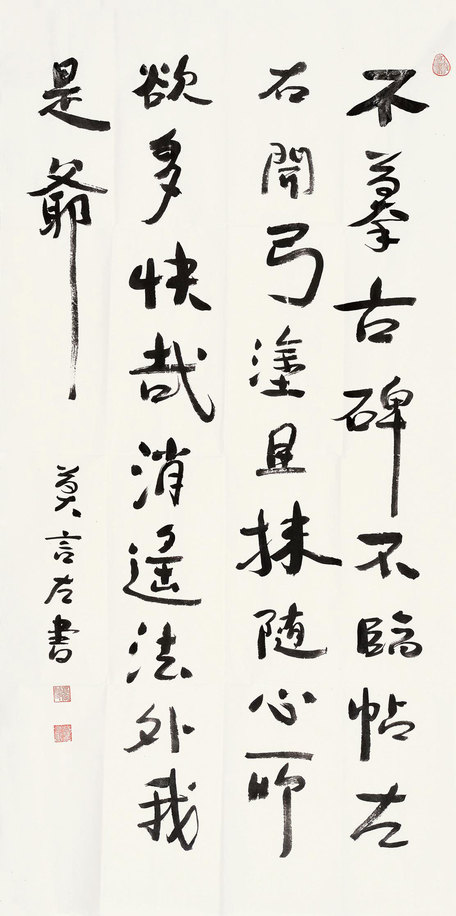 不摹古碑不臨帖左
右開弓塗且抹随心所
欲多快哉消遥法外我
是爺
莫言左書